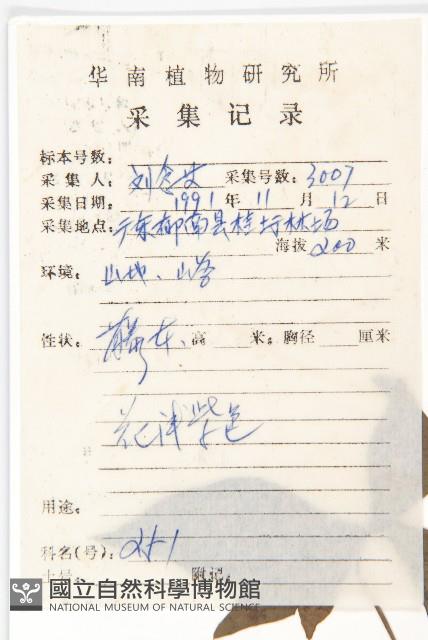 华南植物研究所
采集记录
标本号数:
采集人: 刘念 采集号数: 3007
采集日期: 1991 年 11 月 12 日
采集地点: 广东郁南县桂圩林场
海拔 200 米
环境: 山地、山谷
性状: 藤本、高 米; 胸径 厘米
花淡紫色
用途:
科名(号):
土名: 附记:
國立自然科學博物館
NATIONAL MUSEUM OF NATURAL SCIENCE